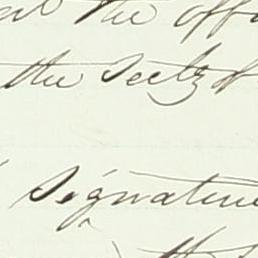 the offi
the Secty of
Signature